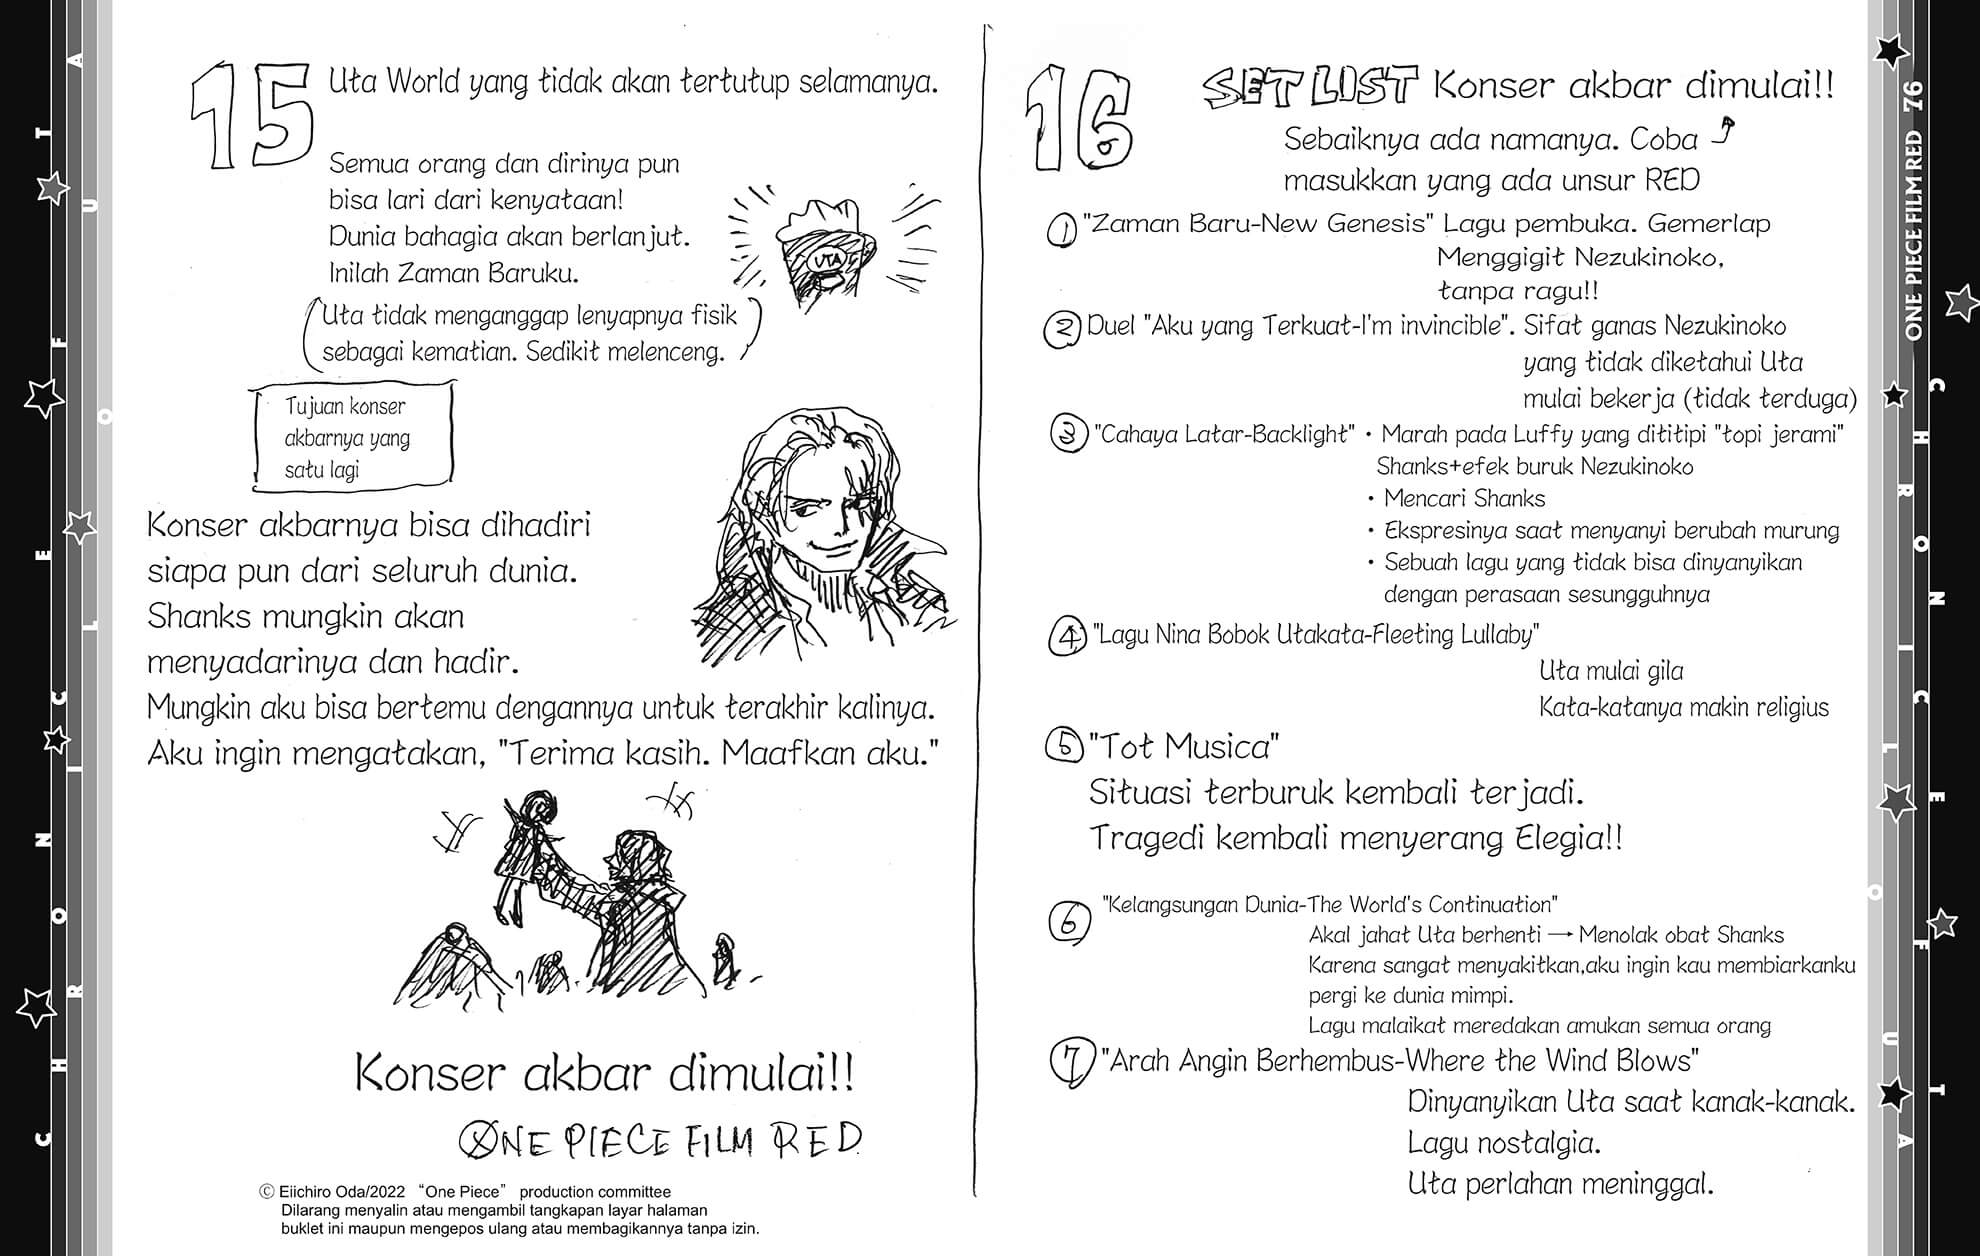 15
Uta World yang tidak akan tertutup selamanya.
Semua orang dan dirinya pun
bisa lari dari kenyataan!
Dunia bahagia akan berlanjut.
Inilah Zaman Baruku.
UTA
(Uta tidak menganggap lenyapnya fisik
sebagai kematian. Sedikit melenceng.)
Tujuan konser
akbarnya yang
satu lagi
Konser akbarnya bisa dihadiri
siapa pun dari seluruh dunia.
Shanks mungkin akan
menyadarinya dan hadir.
Mungkin aku bisa bertemu dengannya untuk terakhir kalinya.
Aku ingin mengatakan, "Terima kasih. Maafkan aku."
Konser akbar dimulai!!
ONE PIECE FILM RED
Ⓒ Eiichiro Oda/2022 “One Piece” production committee
Dilarang menyalin atau mengambil tangkapan layar halaman
buklet ini maupun mengepos ulang atau membagikannya tanpa izin.
16
SET LIST Konser akbar dimulai!!
Sebaiknya ada namanya. Coba
masukkan yang ada unsur RED
① "Zaman Baru-New Genesis" Lagu pembuka. Gemerlap
Menggigit Nezukinoko,
tanpa ragu!!
② Duel "Aku yang Terkuat-I'm invincible". Sifat ganas Nezukinoko
yang tidak diketahui Uta
mulai bekerja (tidak terduga)
③ "Cahaya Latar-Backlight" • Marah pada Luffy yang dititipi "topi jerami"
Shanks+efek buruk Nezukinoko
• Mencari Shanks
• Ekspresinya saat menyanyi berubah murung
• Sebuah lagu yang tidak bisa dinyanyikan
dengan perasaan sesungguhnya
④ "Lagu Nina Bobok Utakata-Fleeting Lullaby"
Uta mulai gila
Kata-katanya makin religius
⑤ "Tot Musica"
Situasi terburuk kembali terjadi.
Tragedi kembali menyerang Elegia!!
⑥ "Kelangsungan Dunia-The World's Continuation"
Akal jahat Uta berhenti → Menolak obat Shanks
Karena sangat menyakitkan,aku ingin kau membiarkanku
pergi ke dunia mimpi.
Lagu malaikat meredakan amukan semua orang
⑦ "Arah Angin Berhembus-Where the Wind Blows"
Dinyanyikan Uta saat kanak-kanak.
Lagu nostalgia.
Uta perlahan meninggal.
ONE PIECE FILM RED 76
CHRONICLE OF UTA
CHRONICLE OF UTA